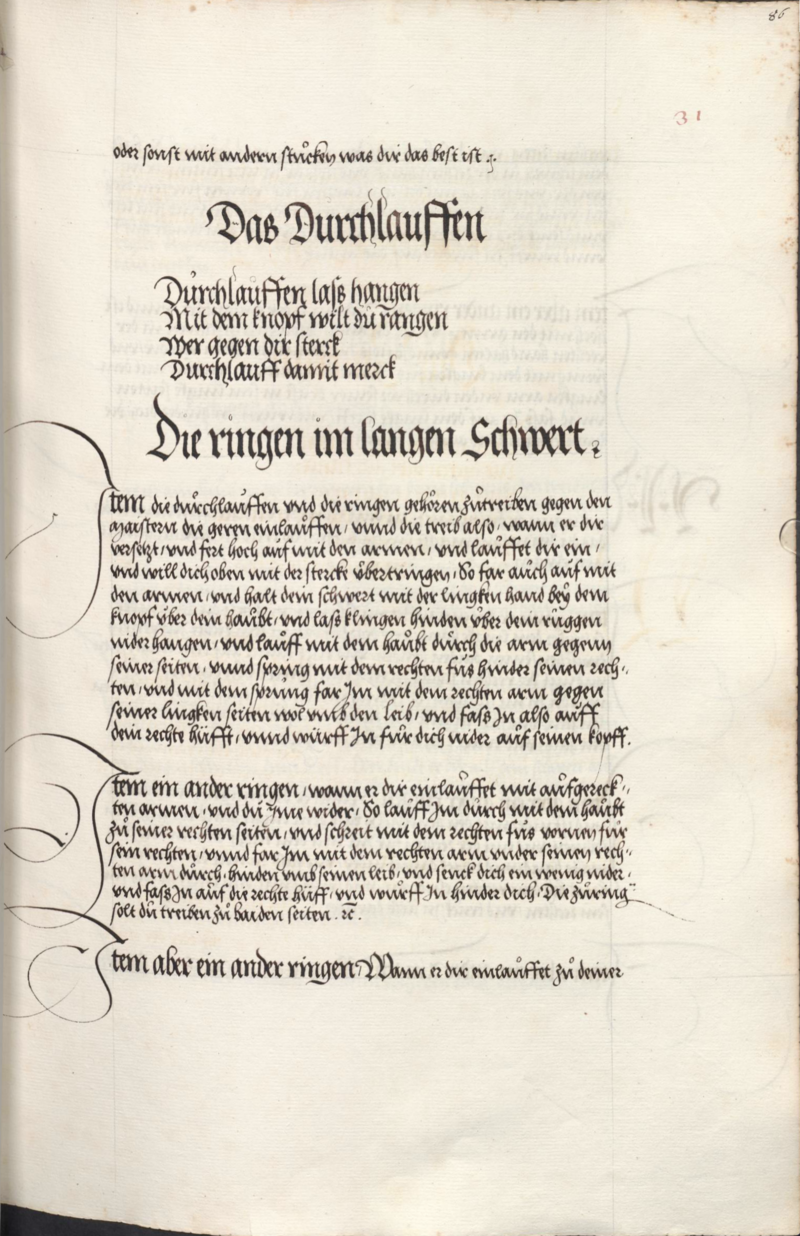 86
31
oder sonst mit andern stůcken was dir das best ist
Das Durchlauffen
Dürchlauffen lass hangen
Mit dem knopf wilt dů rangen
Wer gegen dir sterck
Durchlauff damit merck
Die ringen im langen Schwert.
Item die dürchlauffen vnd die ringen gehören zůtreiben gegen den
maistern die geren einlauffen / vnnd die treib also / wann er dir
versetzt / vnd fert hoch auf mit den armen / vnd laüffet dir ein /
vnd will dich oben mit der stercke übertringen / So far aüch auf mit
den armen / vnd halt dein schwert mit der lingken hand bey dem
knopf über dem haübt / vnd lass klingen hinden über dem rüggen
nider hangen / vnd laüff mit dem haübt dürch die arm gegenn
seiner seiten / vnnd spring mit dem rechten fůs hinder seinen rech-
ten / vnd mit dem sprüng far Im mit dem rechten arm gegen
seiner lingken seiten wol vmb den leib / vnd fass In also auff
dein rechte hüfft / vnnd würff In für dich nider auf seinen kopff.
Item ein ander ringen / wann er dir einlaüffet mit aüfgereck-
ten armen / vnd dü Ime wider / So lauff Im dürch mit dem haübt
zü seiner rechten seiten / vnd schreit mit dem rechten fůs vornen für
sein rechten / vnnd far Im mit dem rechten arm vnder seinen rech-
ten arm dürch / hinden vmb seinen leib / vnd senck dich ein wenig nider /
vnd fass In auf die rechte hüff / vnd würff In hinder dich / Die zü ring
solt dü treiben zü baiden seiten . rc .
Item aber ein ander ringen Wann er dir einlaüffet zü deiner